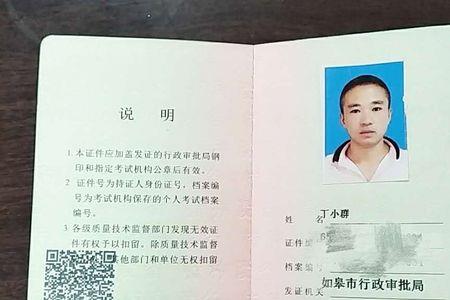 说 明
1. 本证件应加盖发证的行政审批局钢
印和指定考试机构公章后有效。
2 证件号为持证人身份证号，档案编
号为考试机构保存的个人考试档案
编号。
3 各级质量技术监督部门发现无效证
件有权予以扣留。除质量技术监督
其他部门和单位无权扣留
姓 名 丁小群
证件编
档案编
发证机关 如皋市行政审批局